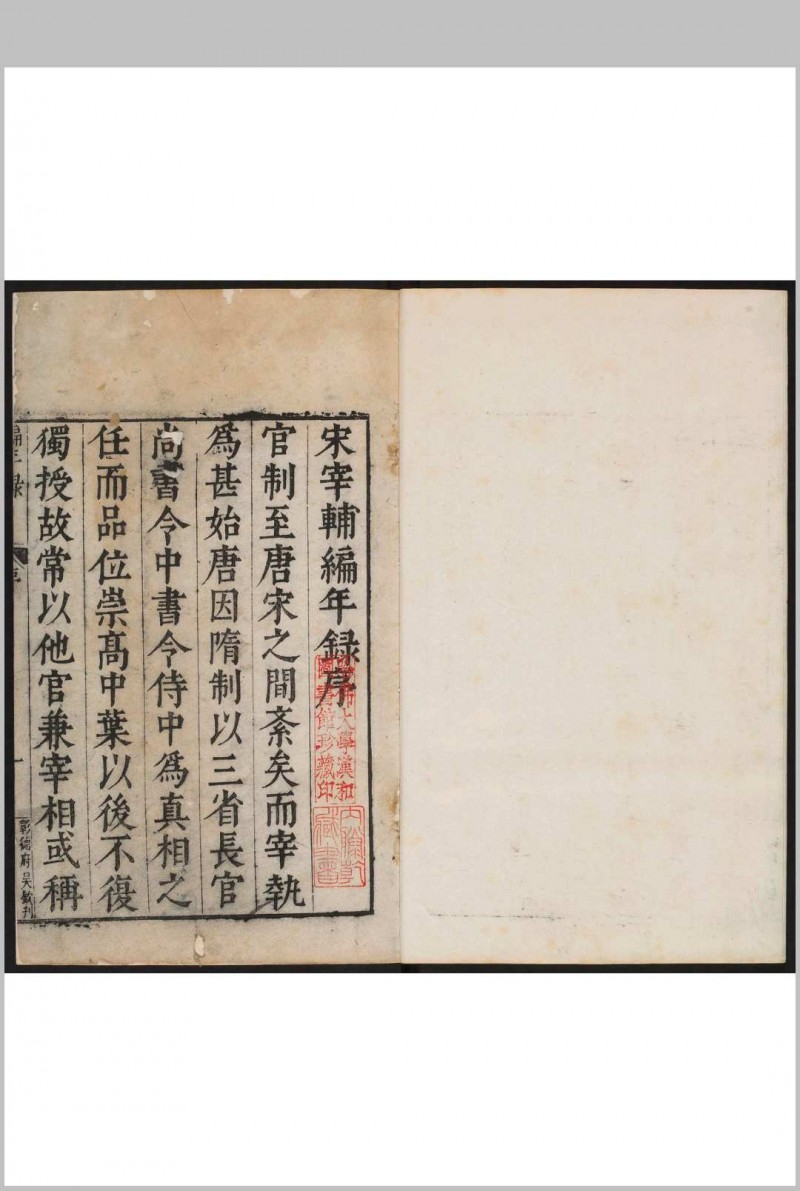 宋宰輔編年録序
官制至唐宋之間紊矣而宰執
爲甚始唐因隋制以三省長官
尚書令中書令侍中爲真相之
任而品位崇髙中葉以後不復
獨授故常以他官兼宰相或稱
編年録
序
一
彰德府吴鈫刊
大學漢和
圖書館珍藏印
藏書